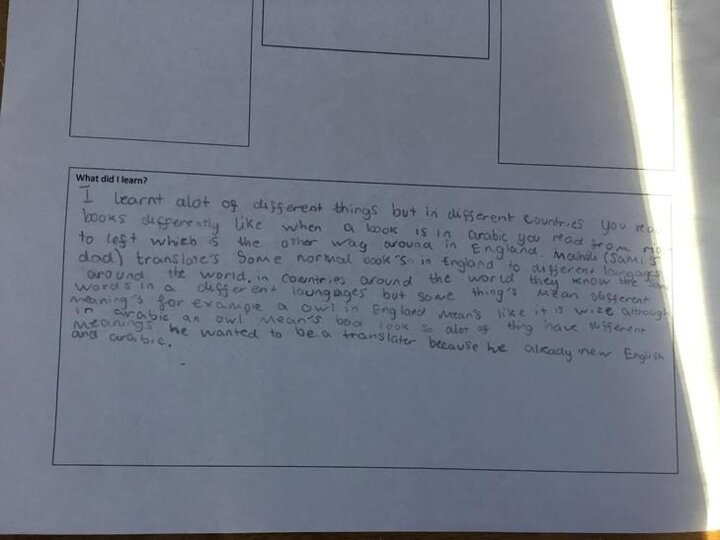 What did I learn?
I learnt alot of different things but in different countries you
books differently like when a book is in arabic you read from
to left which is the other way around in England. (Sami's
dad) translate's some normal book's in England to different laungages
around the world, in countries around the world they know the
words in a different laungages but some thing's mean different
meaning's for example a owl in England means like it is wize although
in arabic an owl mean's bad look so alot of thing have different
meanings. he wanted to be a translater because he already new English
and arabic.